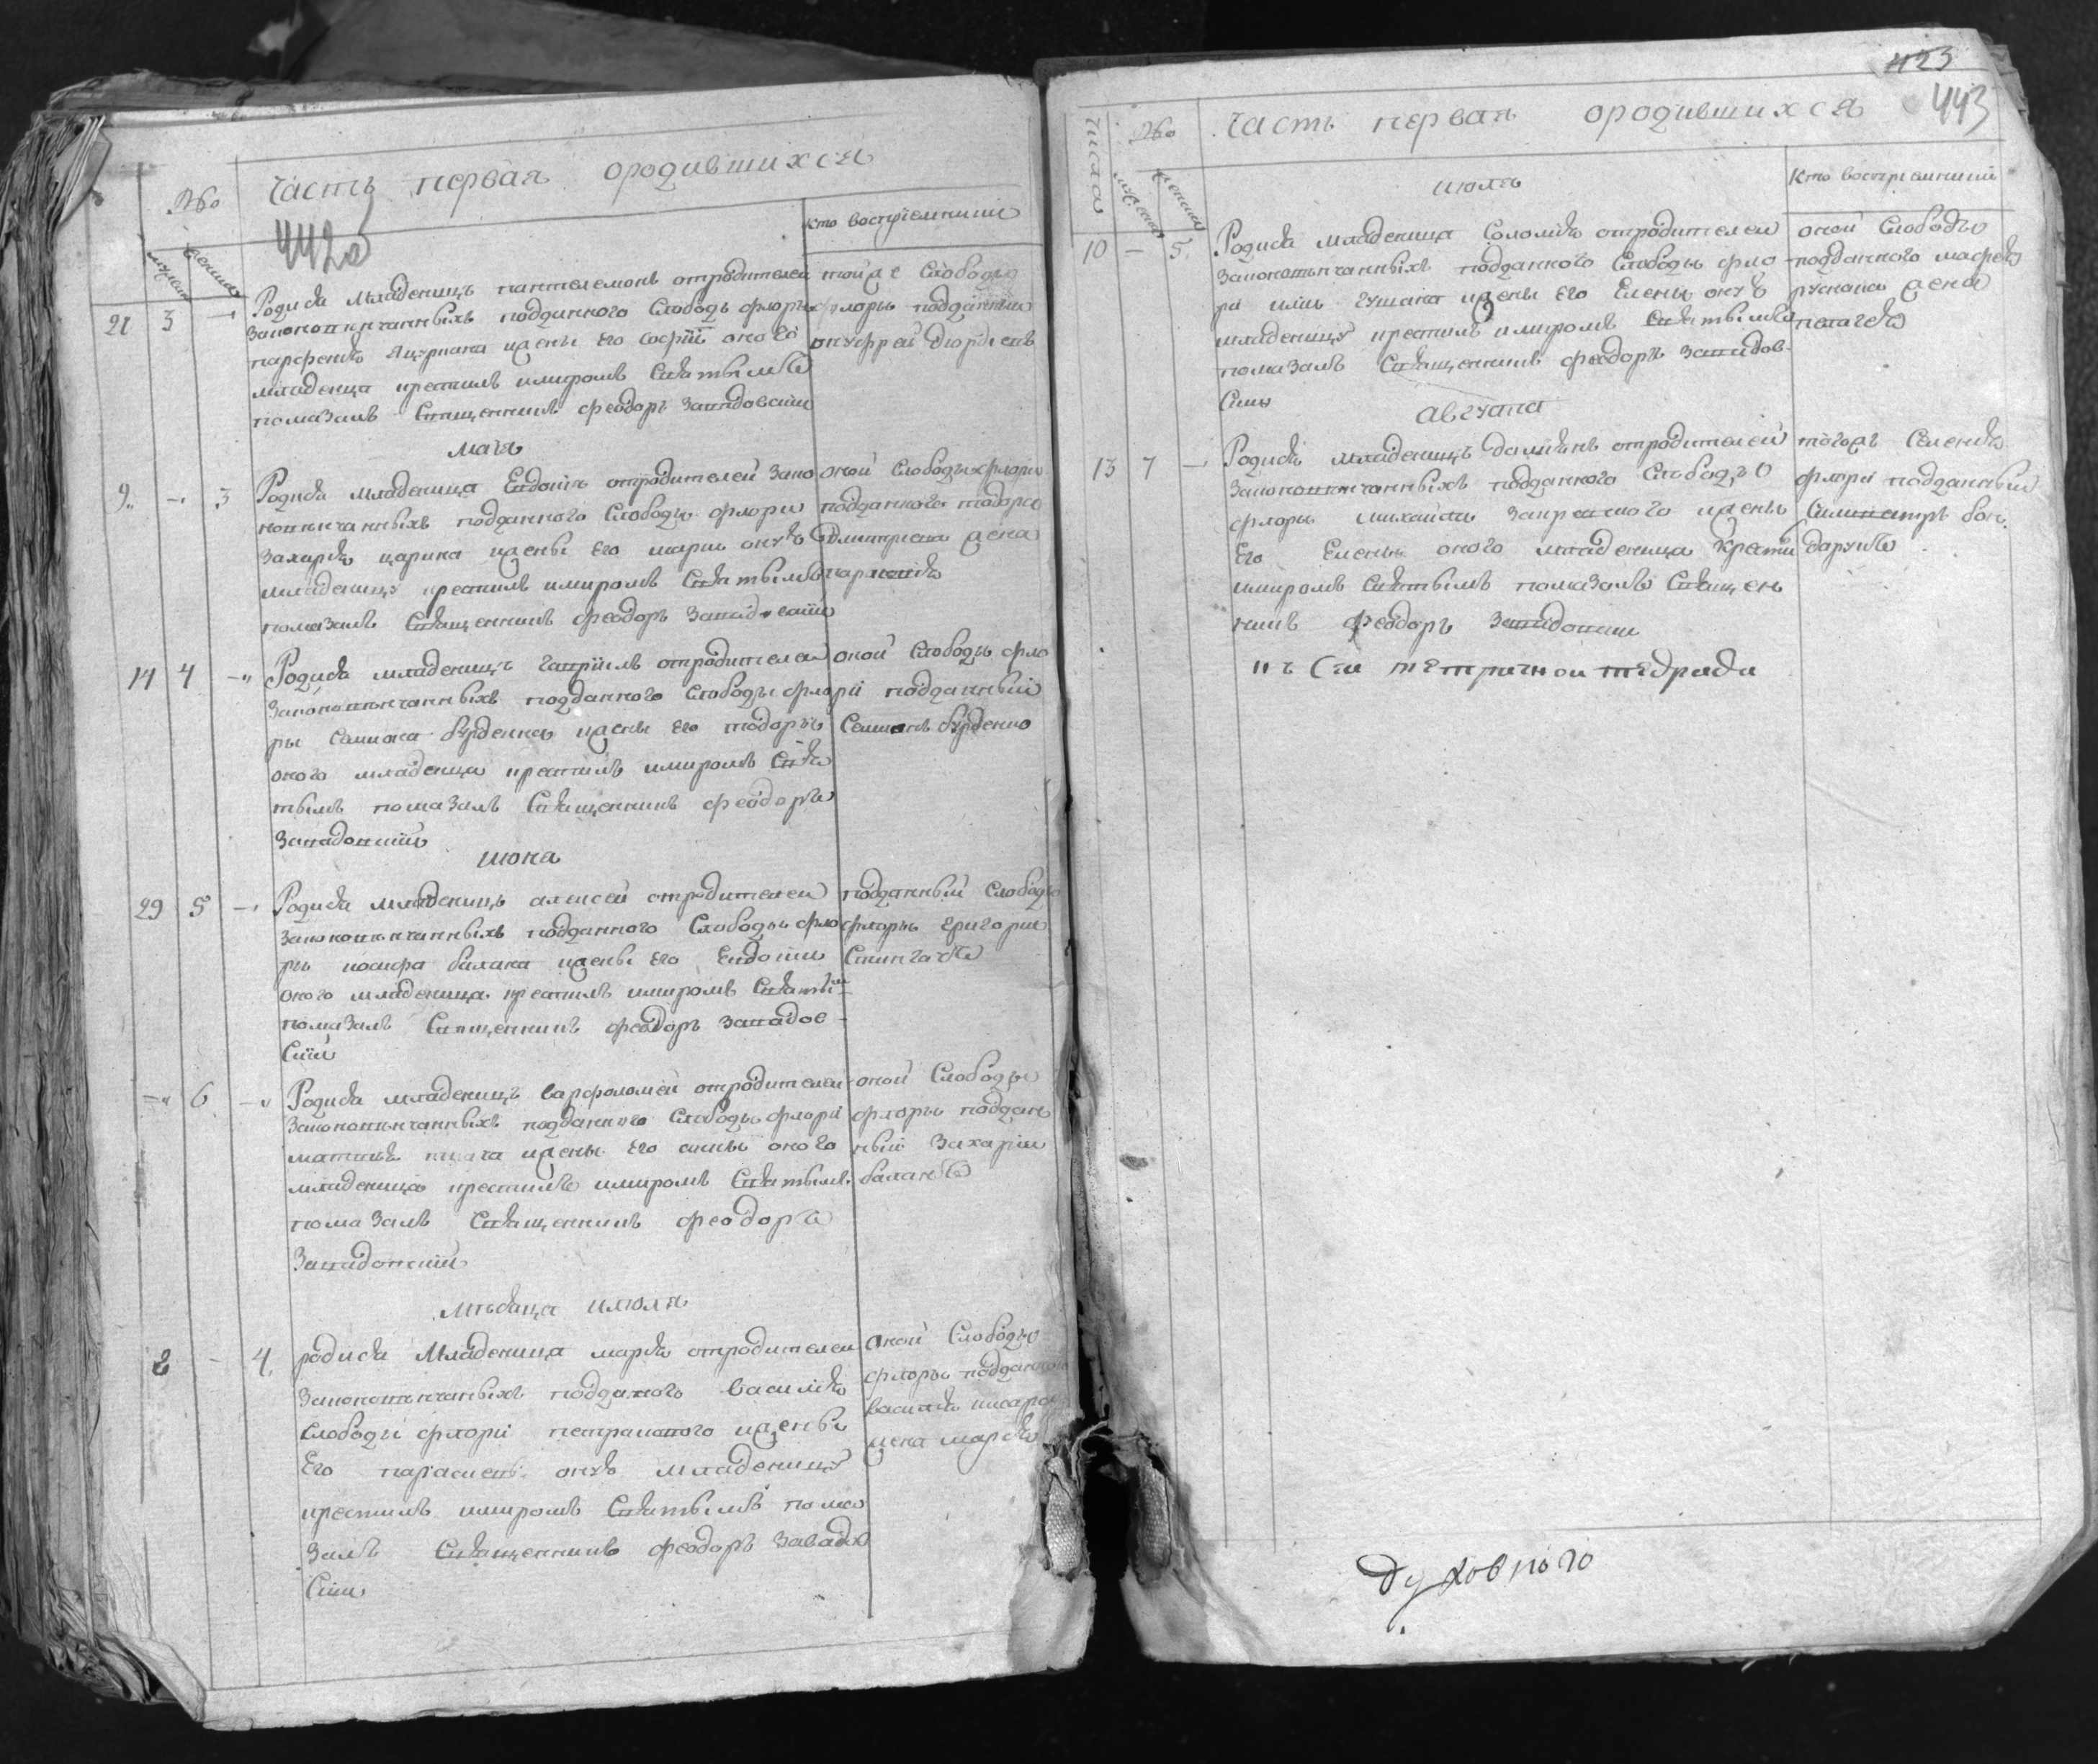 №
часть первая ородившихся
442об
мужеск
женска
кто восприемники
21 3 —
Родися младенецъ пантелемонъ отродителей
законовѣнчанныхъ подданного Слободы флоры
парфенїя яцуриака ижены его софїи оного
младенца крестилъ имиромъ Святымъ
помазалъ Священникъ феодоръ Завадовскїи
тойже Слободы
флоры подданный
онуфрей
маїя
9 — 3
Родися младеница Евдокїя отродителей зако
новѣнчанныхъ подданного Слободы флоры
захарїя царика ижены его марїи оную
младеницу крестилъ имиромъ Святымъ
помазалъ Священникъ феодоръ Завадовскїи
оной Слободы флоры
подданного тодора
Дмитриева жена
14 4 —
Родися младенецъ гаврїилъ отродителей
законовѣнчанныхъ подданного Слободы флорї
ры Семиона бурденка ижены его тодоры
оного младенца крестилъ имиромъ Свя
тымъ помазалъ Священникъ феодоръ
Завадовскїи
оной Слободы фло
подданный
Семионъ бурденко
июня
29 5 —
Родися младенецъ алексей отродителей
законовѣнчанныхъ подданного Слободы фло
ры иосифа балана ижены его Евдокїи
оного младенца крестилъ имиромъ Святым
помазалъ Священникъ феодоръ Завадов
Скїи
подданный Слободы
флоры григорїи
— 6 —
Родися младенецъ варфоломей отродителей
законовѣнчанныхъ подданного Слободы флорї
ижены его анны оного
младенца крестилъ имиромъ Святымъ
помазалъ Священникъ феодоръ
Завадовскїи
оной Слободы
флоры поддан
ный Захарїи
баланъ
мѣсяца июля
8 — 4
родися младеница марїя отродителей
законовѣнчаныхъ поданого василїя
слободї флорї петранового ижены
Его параскевы оную младеницу
крестилъ имиромъ Святымъ пома
залъ Священникъ феодоръ завадов
Скїи
оной Слободы
флоры подданного
василїя писара
жена марїя
423
443
числа
№
часть первая ородившихся
мужеска
женска
июля
кто восприемники
10 — 5
Родися младеница Соломїя отродителей
законовѣнчанныхъ подданного Слободы фло
ри илїи гушана ижены Его Елены оную
младеницу крестилъ имиромъ Святымъ
помазалъ Священникъ феодоръ Завадов
Скїи
оной Слободы
подданного матфея
руснака жена
пелагея
августа
13 7 —
Родися младенецъ дамїянъ отродителей
законовѣнчанныхъ подданного Слободы
флоры михаила ижены
Его Елены оного младенца крести
имиромъ Святымъ помазалъ Священ
никъ феодоръ Завадовскїи
тогожъ Селенїя
флоры подданный
Силивестръ бон
дарукъ
къ Сеи метричнои тедради
духовного